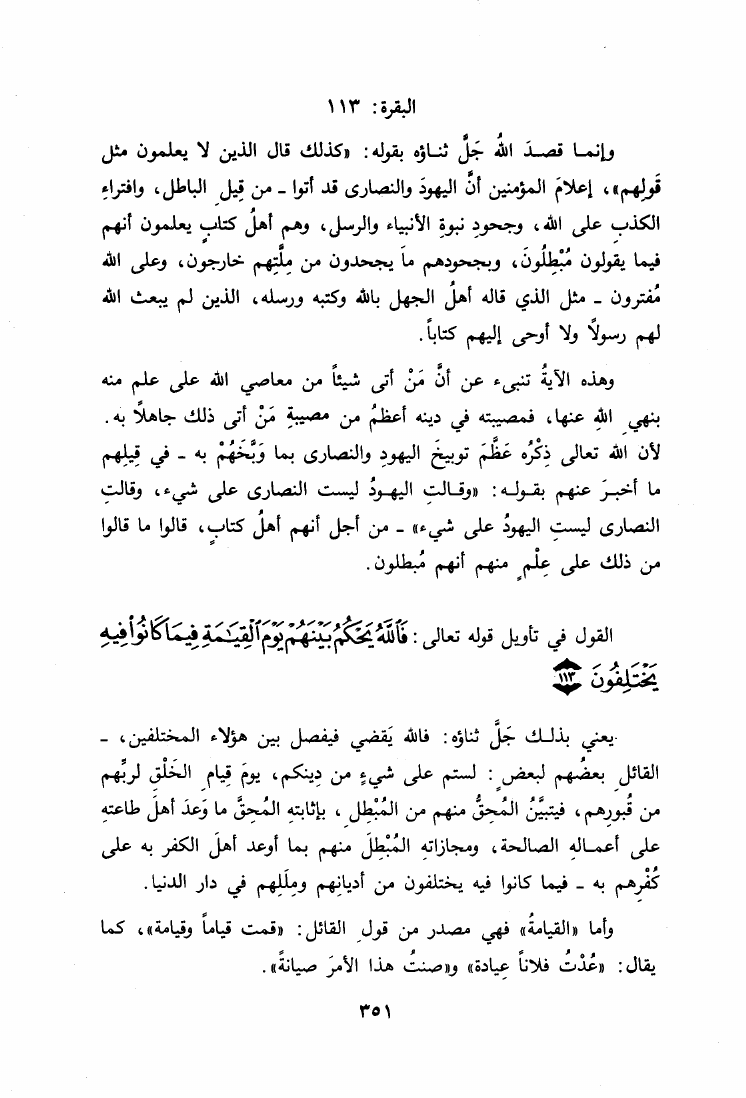 البقرة: ١١٣
وإنمـا قصـدَ اللهُ جَلَّ ثنـاؤه بقوله: «كذلك قال الذين لا يعلمون مثل
قَولِهم»، إعلامَ المؤمنين أنَّ اليهودَ والنصارى قد أتوا ـ من قِيلِ الباطل، وافتراءِ
الكذبِ على الله، وجحودِ نبوةِ الأنبياء والرسل، وهم أهلُ كتابٍ يعلمون أنهم
فيما يقولون مُبْطِلُونَ، وبجحودهم ما يجحدون من مِلَّتِهم خارجون، وعلى الله
مُفترون ـ مثل الذي قاله أهلُ الجهل بالله وكتبه ورسله، الذين لم يبعث الله
لهم رسولاً ولا أوحى إليهم كتاباً.
وهذه الآيةُ تنبىء عن أنَّ مَنْ أتى شيئاً من معاصي الله على علم منه
بنهيِ اللهِ عنها، فمصيبته في دينه أعظمُ من مصيبةِ مَنْ أتى ذلك جاهلاً به.
لأن الله تعالى ذِكْرُه عَظَّمَ توبيخَ اليهودِ والنصارى بما وَبَّخَهُمْ به ـ في قِيلِهم
ما أخبـرَ عنهم بقـولـه: «وقـالتِ اليهـودُ ليست النصارى على شيء، وقالتِ
النصارى ليستِ اليهودُ على شيء» ـ من أجل أنهم أهلُ كتابٍ، قالوا ما قالوا
من ذلك على عِلْمٍ منهم أنهم مُبطلون.
القول في تأويل قوله تعالى: فَٱللَّهُ يَحۡكُمُ بَيۡنَهُمۡ يَوۡمَ ٱلۡقِيَـٰمَةِ فِيمَا كَانُواْ فِيهِ
يَخۡتَلِفُونَ ١١٣
يعني بذلـك جَلَّ ثناؤه: فالله يَقضي فيفصل بين هؤلاء المختلفين، ـ
القائلِ بعضُهم لبعضٍ: لستم على شيءٍ من دِينكم، يومَ قِيامِ الخَلْقِ لربِّهم
من قُبورِهم، فيتبيَّنُ المُحِقُّ منهم من المُبْطِلِ، بإثابتهِ المُحِقَّ ما وَعدَ أهلَ طاعته
على أعمـالهِ الصالحة، ومجازاتهِ المُبْطِلَ منهم بما أوعد أهلَ الكفر به على
كُفْرِهم به ـ فيما كانوا فيه يختلفون من أديانِهم ومِلَلِهم في دار الدنيا.
وأما «القيامةُ» فهي مصدر من قولِ القائل: «قمت قياماً وقيامة»، كما
يقال: «عُدْتُ فلاناً عِيادة» و«صنتُ هذا الأمرَ صيانةً».
٣٥١